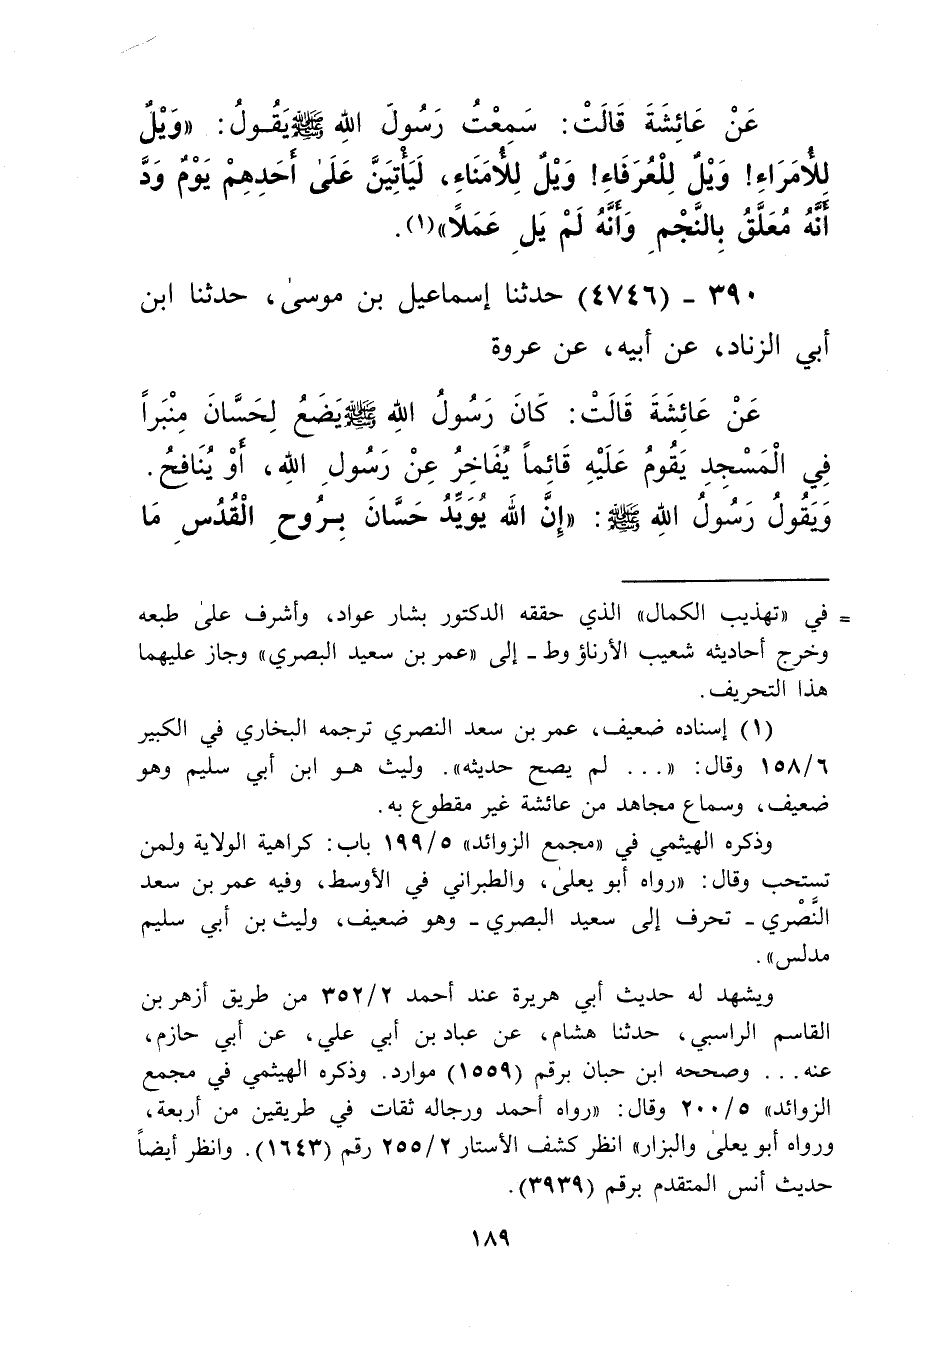 عَنْ عَائِشَةَ قَالَتْ: سَمِعْتُ رَسُولَ اللهِ ﷺ يَقُولُ: «وَيْلٌ
لِلْأُمَرَاءِ! وَيْلٌ لِلْعُرَفَاءِ! وَيْلٌ لِلْأُمَنَاءِ، لَيَأْتِيَنَّ عَلَىٰ أَحَدِهِمْ يَوْمٌ وَدَّ
أَنَّهُ مُعَلَّقٌ بِالنَّجْمِ وَأَنَّهُ لَمْ يَلِ عَمَلاً»(١).
٣٩٠ - (٤٧٤٦) حدثنا إسماعيل بن موسىٰ، حدثنا ابن
أبي الزناد، عن أبيه، عن عروة
عَنْ عَائِشَةَ قَالَتْ: كَانَ رَسُولُ اللهِ ﷺ يَضَعُ لِحَسَّانَ مِنْبَراً
فِي الْمَسْجِدِ يَقُومُ عَلَيْهِ قَائِماً يُفَاخِرُ عِنْ رَسُولِ اللهِ، أَوْ يُنَافِحُ.
وَيَقُولُ رَسُولُ اللهِ ﷺ: «إِنَّ اللهَ يُوَيِّدُ حَسَّانَ بِرُوحِ الْقُدُسِ مَا
= في «تهذيب الكمال» الذي حققه الدكتور بشار عواد، وأشرف علىٰ طبعه
وخرج أحاديثه شعيب الأرناؤوط - إلى «عمر بن سعيد البصري» وجاز عليهما
هذا التحريف.
(١) إسناده ضعيف، عمر بن سعد النصري ترجمه البخاري في الكبير
١٥٨/٦ وقال: «... لم يصح حديثه». وليث هو ابن أبي سليم وهو
ضعيف، وسماع مجاهد من عائشة غير مقطوع به.
وذكره الهيثمي في «مجمع الزوائد» ١٩٩/٥ باب: كراهية الولاية ولمن
تستحب وقال: «رواه أبو يعلىٰ، والطبراني في الأوسط، وفيه عمر بن سعد
النَّصْري - تحرف إلى سعيد البصري - وهو ضعيف، وليث بن أبي سليم
مدلس».
ويشهد له حديث أبي هريرة عند أحمد ٣٥٢/٢ من طريق أزهر بن
القاسم الراسبي، حدثنا هشام، عن عباد بن أبي علي، عن أبي حازم،
عنه... وصححه ابن حبان برقم (١٥٥٩) موارد. وذكره الهيثمي في مجمع
الزوائد» ٢٠٠/٥ وقال: «رواه أحمد ورجاله ثقات في طريقين من أربعة،
ورواه أبو يعلىٰ والبزار» انظر كشف الأستار ٢٥٥/٢ رقم (١٦٤٣). وانظر أيضاً
حديث أنس المتقدم برقم (٣٩٣٩).
١٨٩